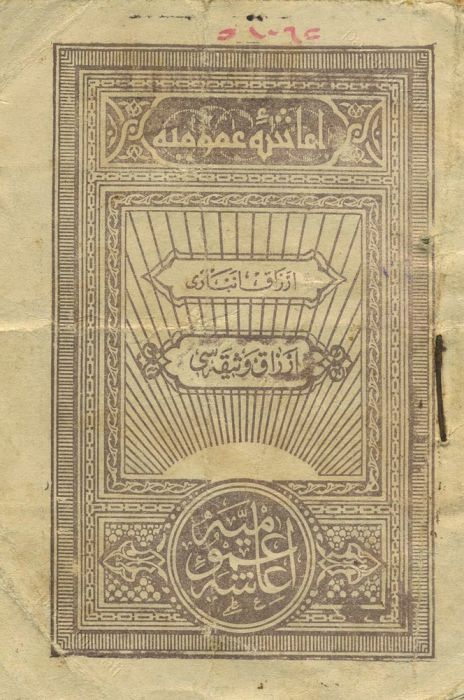 اعاشهٔ عمومیه
ارزاق انباری
ارزاق وثیقه سی
اعاشه عمومیه